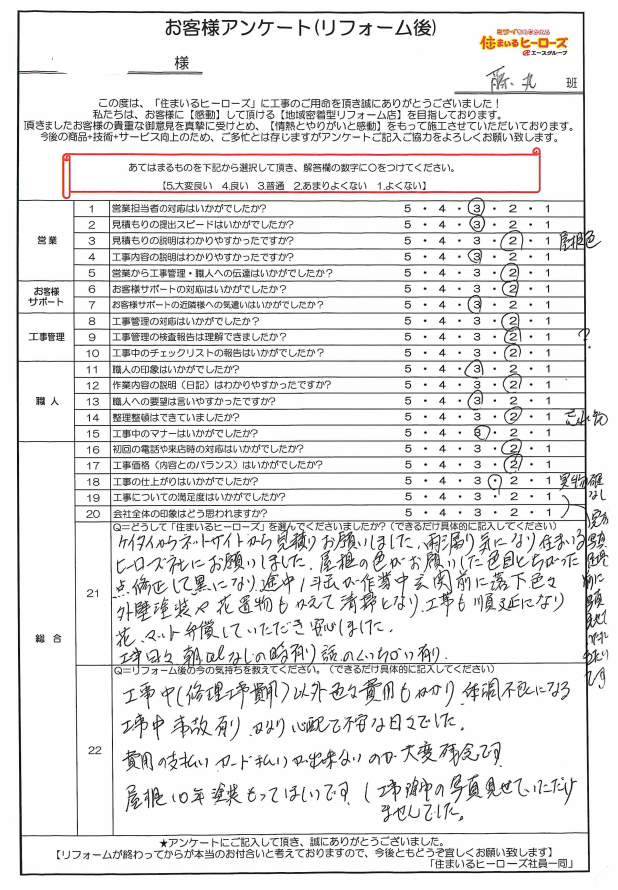 お客様アンケート(リフォーム後)
ミライをもとめられる
住まいるヒーローズ
エースグループ
様
藤丸 班
この度は、「住まいるヒーローズ」に工事のご用命を頂き誠にありがとうございました！
私たちは、お客様に【感動】して頂ける【地域密着型リフォーム店】を目指しております。
頂きましたお客様の貴重な御意見を真摯に受けとめ、【情熱とやりがいと感動】をもって施工させていただいております。
今後の商品+技術+サービス向上のため、ご多忙とは存じますがアンケートご記入ご協力をよろしくお願い致します。
あてはまるものを下記から選択して頂き、解答欄の数字に○をつけてください。
【5.大変良い 4.良い 3.普通 2.あまりよくない 1.よくない】
営業
1 営業担当者の対応はいかがでしたか？ 5・4・3・2・1
2 見積もりの提出スピードはいかがでしたか？ 5・4・3・2・1
3 見積もりの説明はわかりやすかったですか？ 5・4・3・2・1 屋根色
4 工事内容の説明はわかりやすかったですか？ 5・4・3・2・1
5 営業から工事管理・職人への伝達はいかがでしたか？ 5・4・3・2・1
お客様サポート
6 お客様サポートの対応はいかがでしたか？ 5・4・3・2・1
7 お客様サポートの近隣様への気遣いはいかがでしたか？ 5・4・3・2・1
工事管理
8 工事管理の対応はいかがでしたか？ 5・4・3・2・1
9 工事管理の検査報告は理解できましたか？ 5・4・3・2・1 ?
10 工事中のチェックリストの報告はいかがでしたか？ 5・4・3・2・1
職人
11 職人の印象はいかがでしたか？ 5・4・3・2・1
12 作業内容の説明（日記）はわかりやすかったですか？ 5・4・3・2・1
13 職人への要望は言いやすかったですか？ 5・4・3・2・1
14 整理整頓はできていましたか？ 5・4・3・2・1 忘れ物
15 工事中のマナーはいかがでしたか？ 5・4・3・2・1
総合
16 初回の電話や来店時の対応はいかがでしたか？ 5・4・3・2・1
17 工事価格（内容とのバランス）はいかがでしたか？ 5・4・3・2・1
18 工事の仕上がりはいかがでしたか？ 5・4・3・2・1
19 工事についての満足度はいかがでしたか？ 5・4・3・2・1
20 会社全体の印象はどう思われますか？ 5・4・3・2・1
21
Q=どうして「住まいるヒーローズ」を選んでくださいましたか？（できるだけ具体的に記入してください）
ケイタイからネットサイトから見積りお願いしました。雨漏り気になり住まいる
ヒーローズ社にお願いしました。屋根の色がお願いした色目とちがった
点修正して黒になり、途中
作業中玄関前に落下色々
外壁塗装や花置物もかえて清掃となり、工事も順延になり
花、マット弁償していただき安心しました。
工事日々 朝 なしの時有り 話のくいちがい有り。
22
Q=リフォーム後の今の気持ちを教えてください。（できるだけ具体的に記入してください）
工事中（修理工事費用）以外色々費用もかかり 体調不良になる
工事中 事故有り かなり心配で不安な日々でした。
費用の支払い カード払いが出来ないのが 大変残念です
屋根10年塗装もってほしいです、
工事途中の写真見せていただけ
ませんでした。
★アンケートにご記入して頂き、誠にありがとうございました。
【リフォームが終わってからが本当のお付合いと考えておりますので、今後ともどうぞ宜しくお願い致します】
「住まいるヒーローズ社員一同」